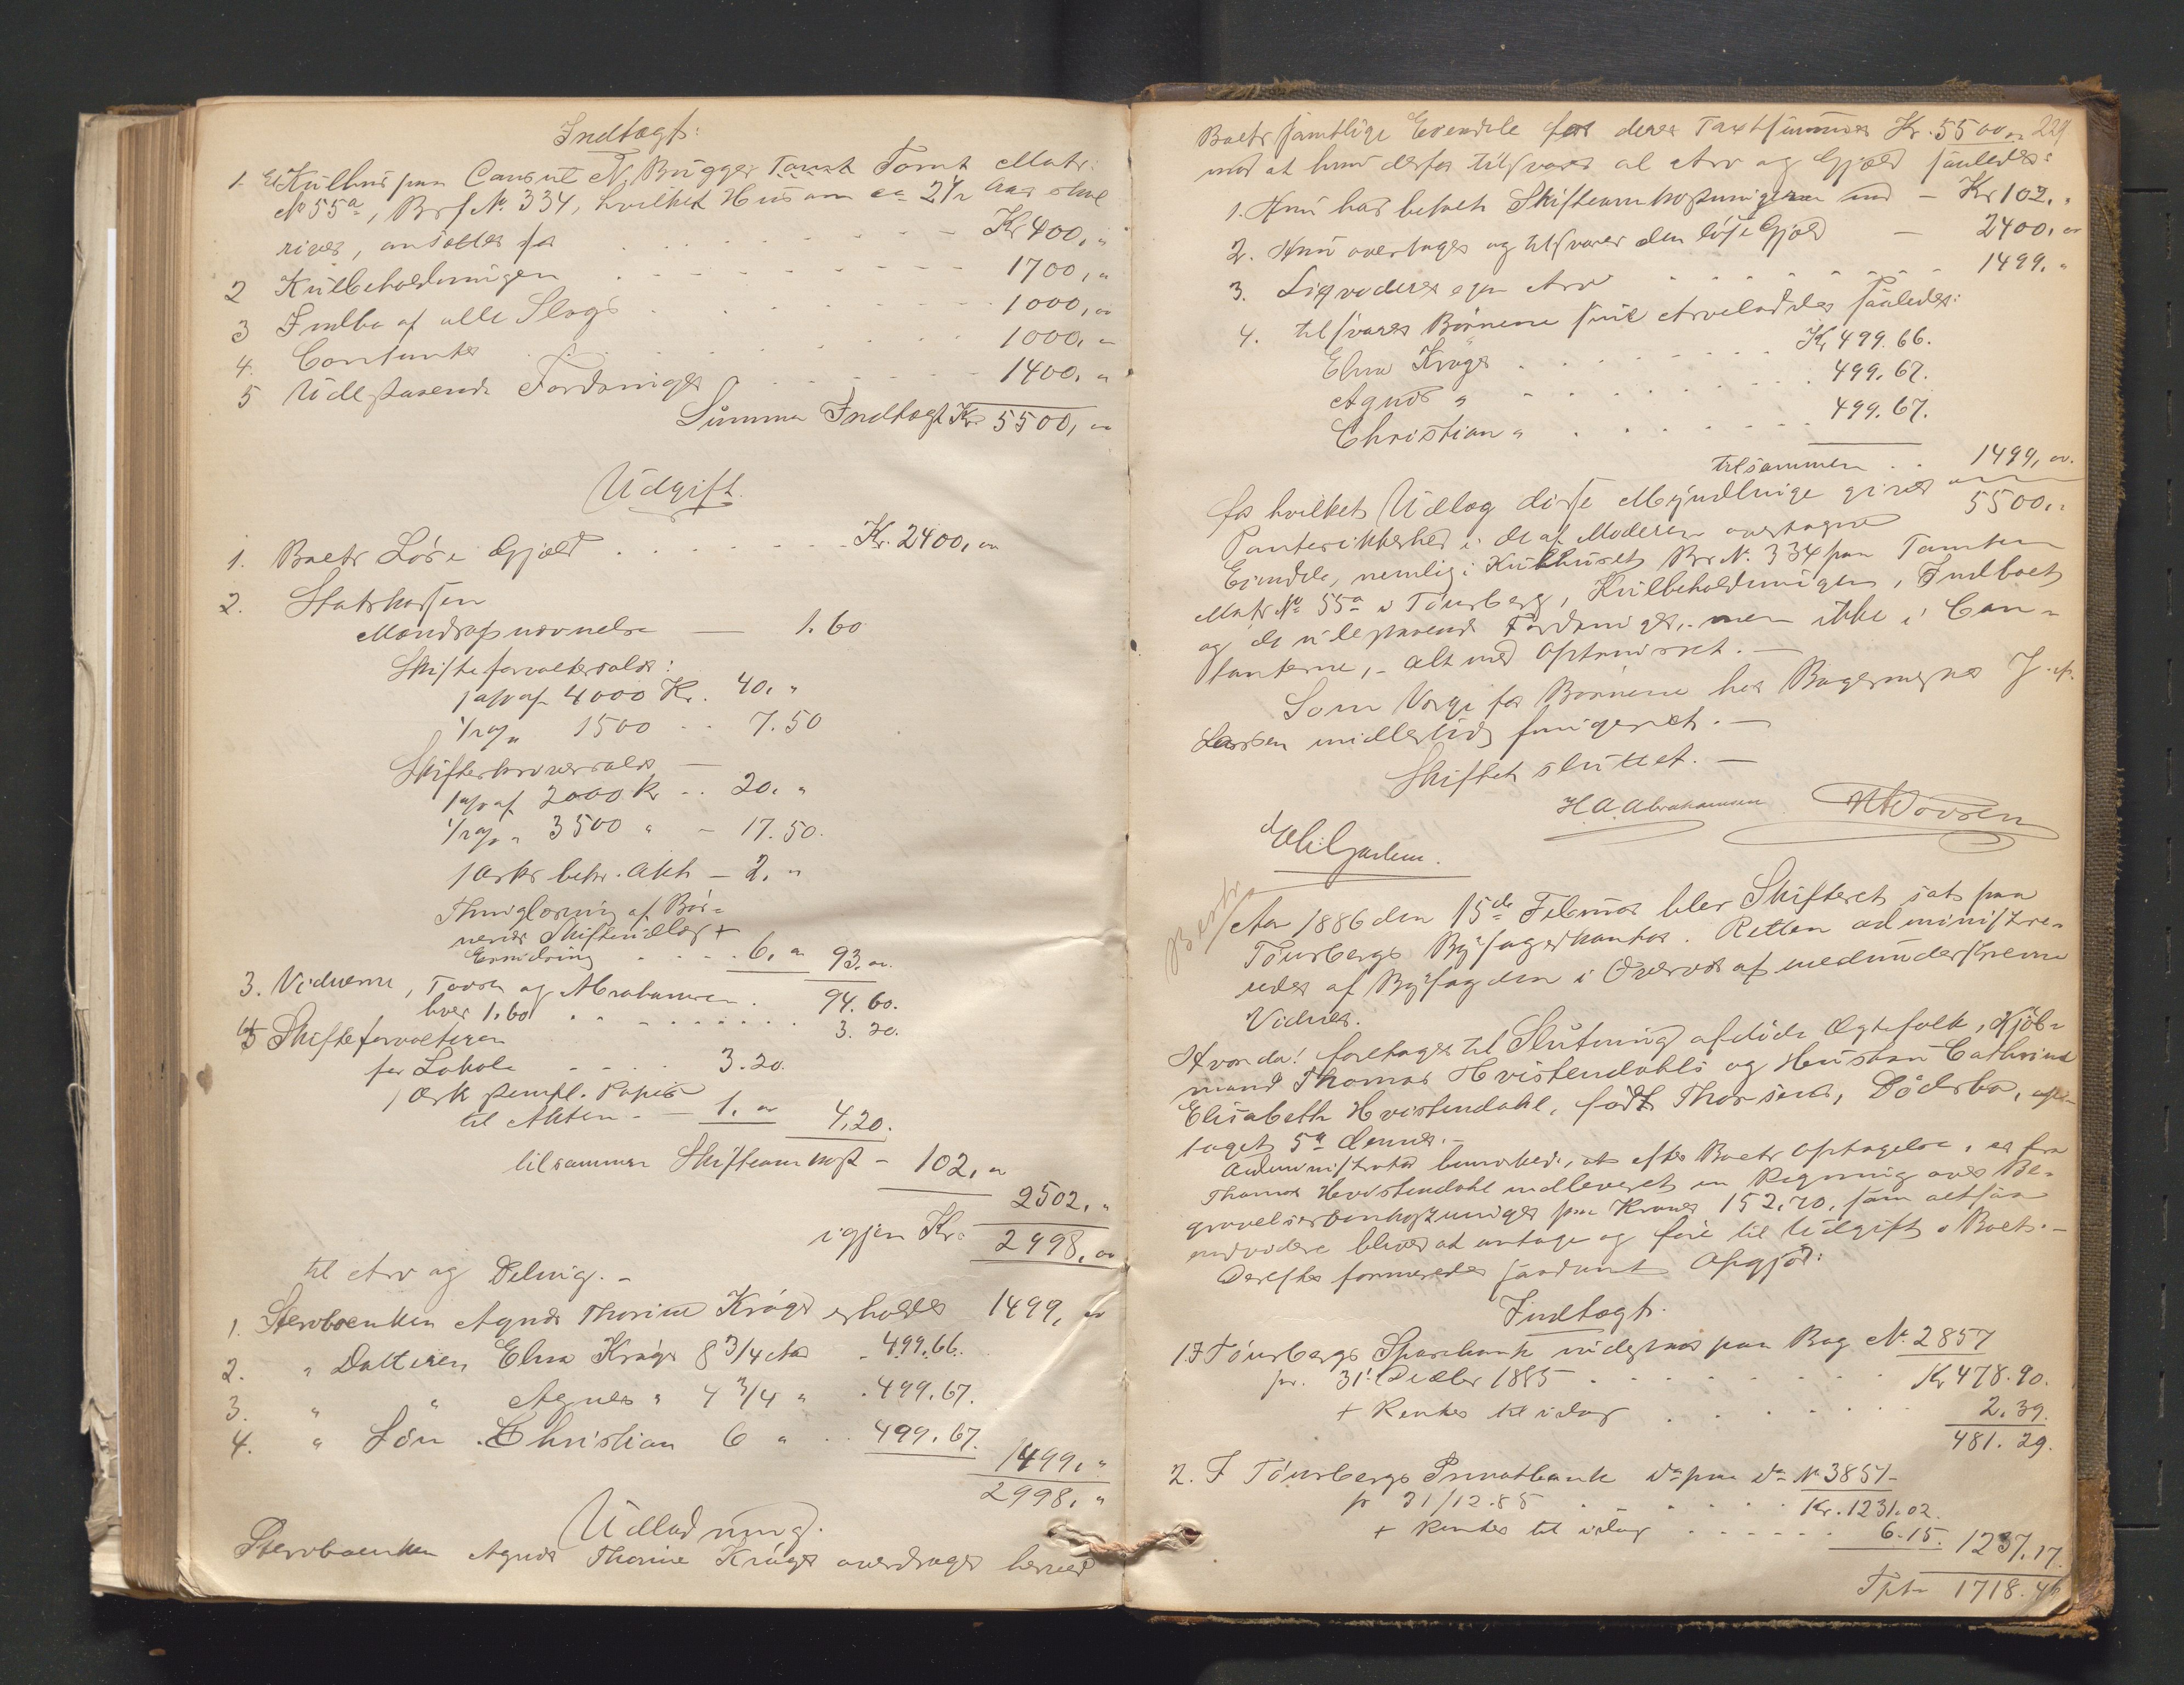 Indtægt:
1. Et Kulhus paa Consul N. Bugges Tomt Matr:
No 55a, Brf No. 334, hvilket Hus om ca 2 1/2 Aar skal
rives, ansættes for Kr 400, "
2 Kulbeholdningen 1700, "
3 Indbo af alle Slags 1000, "
4. Contanter 1000, "
5 Udestaaende Fordringer 1400, "
Summa Indtægt Kr 5500, "
Udgift.
1. Boets Løse Gjæld Kr. 2400, "
2. Statskassen
Mandtapsnævnelse — 1.60
Skifteforvaltersalær:
1 % af 4000 Kr. 40, "
1/2 % " 1500 " 7.50
Skifteskriversalær —
1 % af 2000 Kr " 20, "
1/2 % " 3500 " - 17.50.
1 Arks bekr. Akt — 2, "
Thinglæsning af Bør=
nenes Skifteudlæg +
Erindring 6, " 93, "
94.60.
3. Vidnerne, Tovsen og Abrahamsen.
hver 1.60 3.20.
4 Skifteforvalteren
for Lokale 3.20.
1 Ark stempl. Papir
til Akten — 1. " 4,20.
tilsammen Skifteomkost - 102, "
2502, "
igjen Kr. 2998, "
til Arv og Deling. -
1. Stervboenken Agnes Thorine Krøger erholder 1499, "
2. " Datteren Elna Krøger 8 3/4 Aar 499.66.
3. " " Agnes " 4 3/4 " 499.67.
4. " Søn Christian 6 " 499.67.
1499, "
2998, "
Udlodning.
Stervboenken Agnes Thorine Krøger overdrages herved
229
Boets samtlige Eiendele for deres Taxtsummer Kr. 5500 "
mod at hun derfor tilsvarer al Arv og Gjæld saaledes:
1. Hun har betalt Skifteomkostningerne med — Kr 102, "
2. Hun overtager og tilsvarer den løse Gjæld — 2400, "
3. Liqviderer egen Arv 1499, "
4. tilsvarer Børnene sine Arvelodder saaledes:
Elna Krøger Kr 499.66.
Agnes " 499.67.
Christian " 499.67.
tilsammen 1499, "
5500, "
for hvilket Udlæg disse Myndlinge gives
Pantesikkerhed i de af Moderen overtagne
Eiendele, nemlig i Kulhuset Br No. 334 paa Tomten
Matr No 55a i Tønsberg, Kulbeholdningen, Indboet
og de udestaaende Fordringer, men ikke i Con=
tanterne, - alt med Optrinsret. —
Som Værge for Børnene har Bagermester J.
Larsen midlertidig fungeret. —
Skiftet sluttet. —
H A Abrahamsen
Aar 1886 den 15de Februar blev Skifteret sat paa
Tønsbergs Byfogedkontor. Retten administre=
redes af Byfogden i Overvær af medunderskrevne
Vidner.
Hvorda! foretages til Slutning afdøde Ægtefolk, Kjøb=
mand Thomas Hvistendahls og Hustru Cathrine
Elisabeth Hvistendahl, født Thorsens, Dødsbo, op=
taget 5te dennes. -
Administrator bemærkede, at efter Boets Optagelse, er fra
Thomas Hvistendahl indleveret en Regning over Be=
gravelsesomkostninger paa Kroner 152,70, som altsaa
endvidere bliver at antage og føre til Udgift i Boet. —
Derefter formeredes saadant Opgjør:
Indtægt.
1. I Tønsbergs Sparebank indestaar paa Bog No. 2857
pr. 31. Decbr 1885 Kr 478.90.
+ Renter til idag 2.39.
481.29.
2. I Tønsbergs Privatbank do paa do No 3857-
pr 31/12.85 Kr. 1231.02.
+ Renter til idag 6.15. 1237.17.
Tpt 1718.46